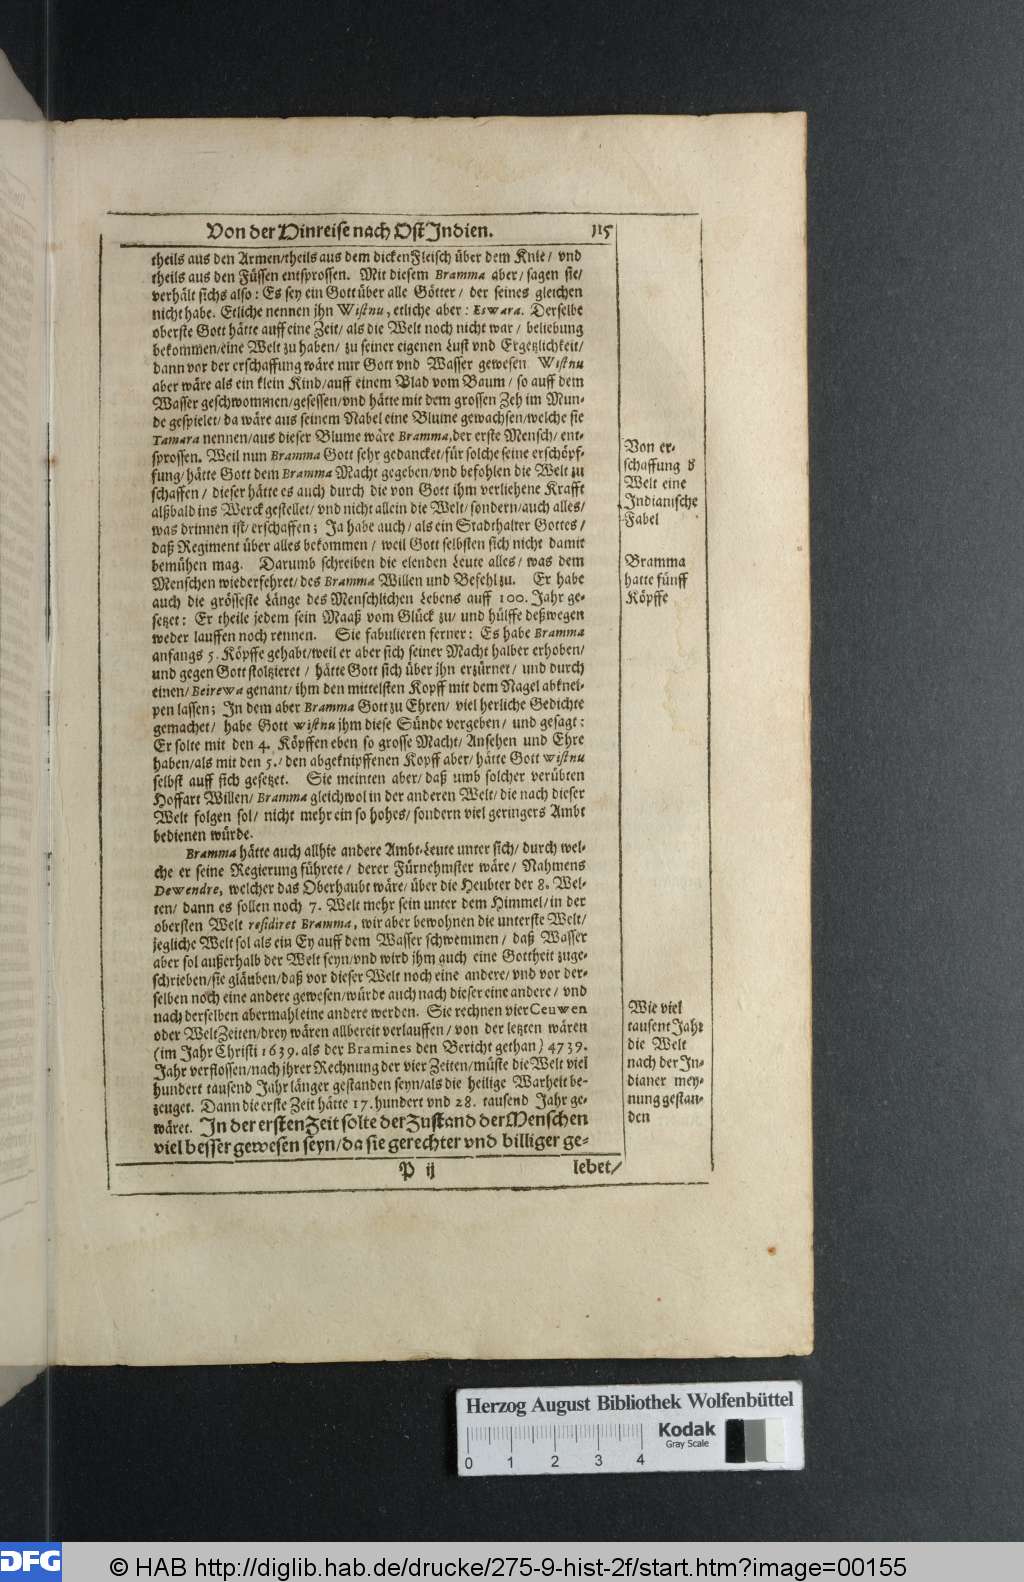 Von der Hinreise nach Ost Indien. 115
theils aus den Armen/theils aus dem dicken Fleisch über dem Knie/ vnd
theils aus den Füssen entsprossen. Mit diesem Bramma aber/ sagen sie/
verhält sichs also: Es sey ein Gott über alle Götter/ der seines gleichen
nicht habe. Etliche nennen jhn Wistnu, etliche aber: Eswara. Derselbe
oberste Gott hätte auff eine Zeit/ als die Welt noch nicht war/ beliebung
bekommen/eine Welt zu haben/ zu seiner eigenen Lust vnd Ergetzlichkeit/
dann vor der erschaffung wäre nur Gott vnd Wasser gewesen Wistnu
aber wäre als ein klein Kind/auff einem Blad vom Baum/ so auff dem
Wasser geschwommen/gesessen/vnd hätte mit dem grossen Zeh im Mun-
de gespielet/ da wäre aus seinem Nabel eine Blume gewachsen/welche sie
Tamara nennen/aus dieser Blume wäre Bramma, der erste Mensch/ ent-
sprossen. Weil nun Bramma Gott sehr gedancket/für solche seine erschöpf-
fung/ hätte Gott dem Bramma Macht gegeben/vnd befohlen die Welt zu
schaffen/ dieser hätte es auch durch die von Gott ihm verliehene Krafft
alßbald ins Werck gestellet/ vnd nicht allein die Welt/ sondern/auch alles/
was drinnen ist/ erschaffen; Ja habe auch/ als ein Stadthalter Gottes/
daß Regiment über alles bekommen/ weil Gott selbsten sich nicht damit
bemühen mag. Darumb schreiben die elenden Leute alles/ was dem
Menschen wiederfehret/ des Bramma Willen und Befehl zu. Er habe
auch die grösseste Länge des Menschlichen Lebens auff 100. Jahr ge-
setzet: Er theile jedem sein Maaß vom Glück zu/ und hülffe deßwegen
weder lauffen noch rennen. Sie fabulieren ferner: Es habe Bramma
anfangs 5. Köpffe gehabt/weil er aber sich seiner Macht halber erhoben/
und gegen Gott stoltzieret/ hätte Gott sich über jhn erzürnet/ und durch
einen/ Beirewa genant/ ihm den mittelsten Kopff mit dem Nagel abknei-
pen lassen; In dem aber Bramma Gott zu Ehren/ viel herliche Gedichte
gemachet/ habe Gott wistnu jhm diese Sünde vergeben/ und gesagt:
Er solte mit den 4. Köpffen eben so grosse Macht/ Ansehen und Ehre
haben/als mit den 5./ den abgeknipffenen Kopff aber/ hätte Gott wistnu
selbst auff sich gesetzet. Sie meinten aber/ daß umb solcher verübten
Hoffart Willen/ Bramma gleichwol in der anderen Welt/ die nach dieser
Welt folgen sol/ nicht mehr ein so hohes/ sondern viel geringers Ambt
bedienen würde.
Bramma hätte auch allhie andere Ambt-Leute unter sich/ durch wel-
che er seine Regierung führete/ derer Fürnehmster wäre/ Nahmens
Dewendre, welcher das Oberhaubt wäre/ über die Heubter der 8. Wel-
ten/ dann es sollen noch 7. Welt mehr sein unter dem Himmel/ in der
obersten Welt residiret Bramma, wir aber bewohnen die unterste Welt/
jegliche Welt sol als ein Ey auff dem Wasser schwemmen/ daß Wasser
aber sol außerhalb der Welt seyn/vnd wird jhm auch eine Gottheit zuge-
schrieben/sie gläuben/daß vor dieser Welt noch eine andere/ vnd vor der-
selben noch eine andere gewesen/würde auch nach dieser eine andere/ vnd
nach derselben abermahl eine andere werden. Sie rechnen vier Ceuwen
oder Welt Zeiten/drey wären allbereit verlauffen/ von der letzten wären
(im Jahr Christi 1639. als der Bramines den Bericht gethan) 4739.
Jahr verflossen/nach jhrer Rechnung der vier Zeiten/müste die Welt viel
hundert tausend Jahr länger gestanden seyn/als die heilige Warheit be-
zeuget. Dann die erste Zeit hätte 17. hundert vnd 28. tausend Jahr ge-
wäret. In der ersten Zeit solte der Zustand der Menschen
viel besser gewesen seyn/da sie gerechter vnd billiger ge-
P ij lebet/
Von er-
schaffung d
Welt eine
Indianische
Fabel
Bramma
hatte fünff
Köpffe
Wie viel
tausent Jahr
die Welt
nach der In-
dianer mey-
nung gestan-
den
Herzog August Bibliothek Wolfenbüttel
Kodak
Gray Scale
0 1 2 3 4
DFG
© HAB http://diglib.hab.de/drucke/275-9-hist-2f/start.htm?image=00155